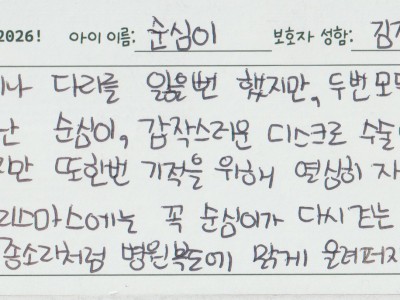 2026! 아이 이름: 순심이 보호자 성함: 김
나 다리를 잃을뻔 했지만, 두번모
난 순심이, 갑작스러운 디스크로 수술
지만 또한번 기적을 위해 열심히 자
리스마스에는 꼭 순심이가 다시걷는
종소리처럼 병원복도에 맑게 울려퍼지